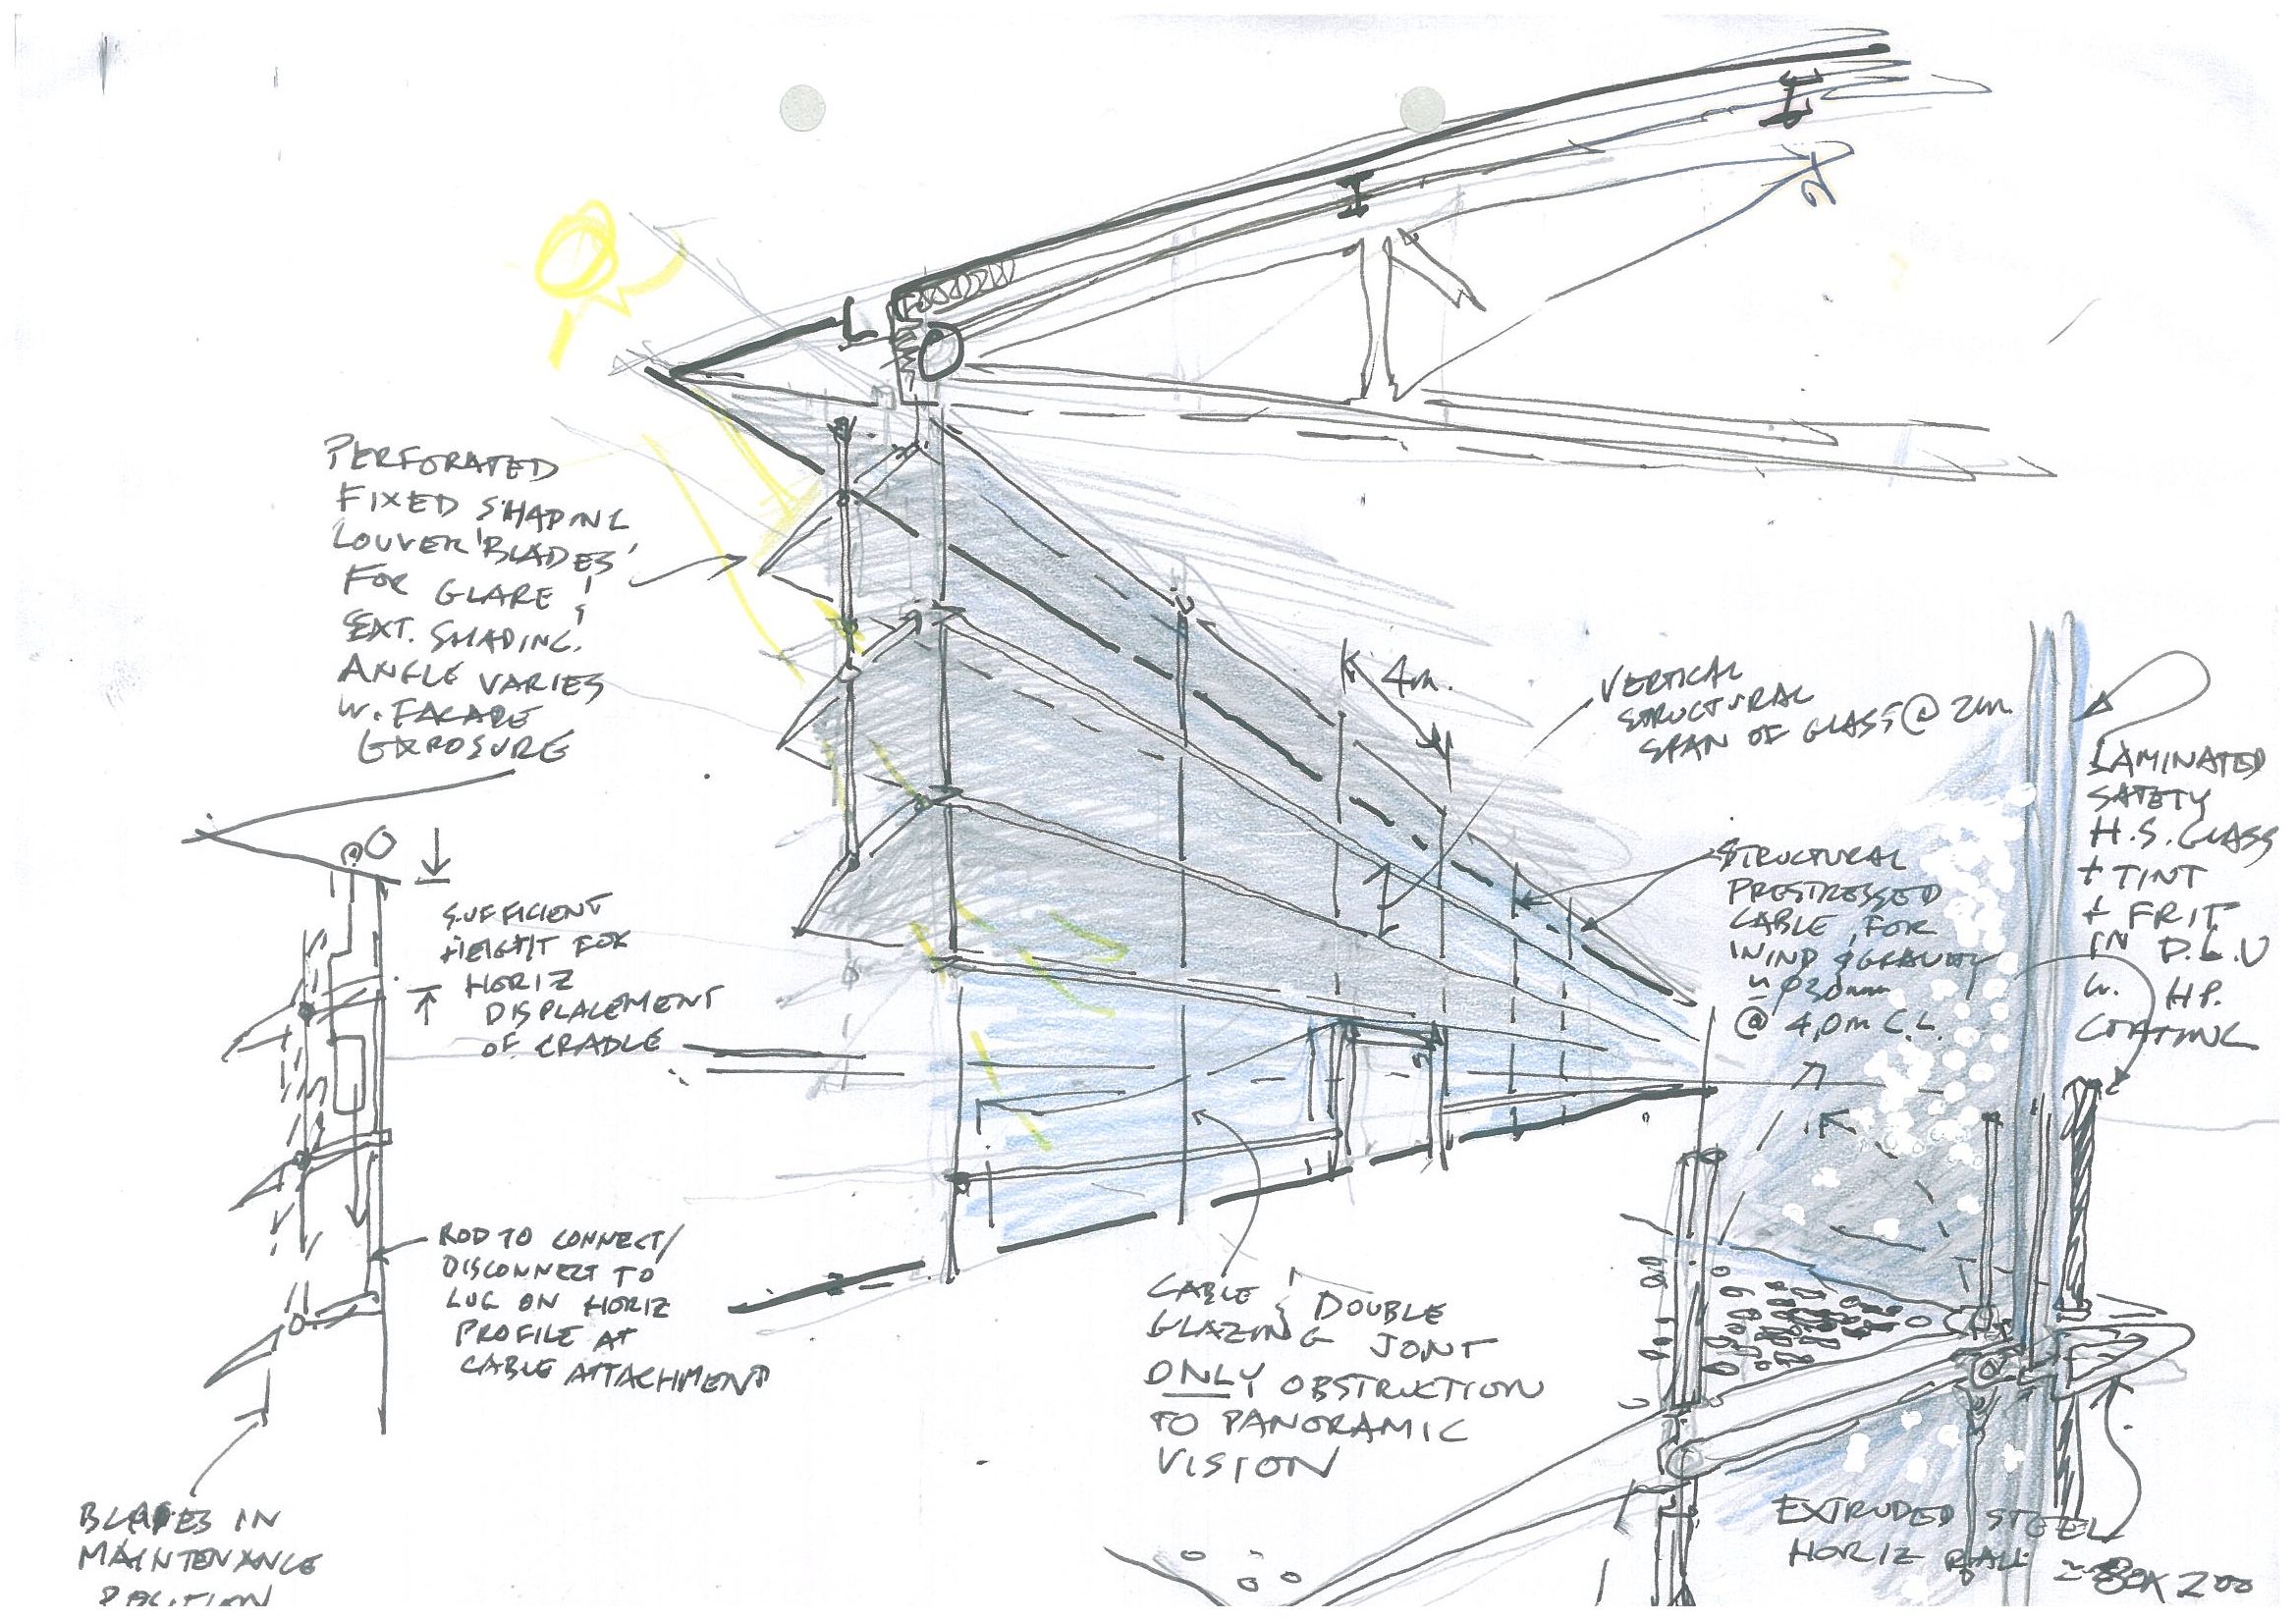 PERFORATED
FIXED SHADING
LOUVER 'BLADES'
FOR GLARE &
EXT. SHADING.
ANGLE VARIES
W. FACADE
EXPOSURE
SUFFICIENT
HEIGHT FOR
HORIZ
DISPLACEMENT
OF CRADLE
ROD TO CONNECT/
DISCONNECT TO
LUG ON HORIZ
PROFILE AT
CABLE ATTACHMENT
BLADES IN
MAINTENANCE
POSITION
4m.
VERTICAL
STRUCTURAL
SPAN OF GLASS @ 2m.
STRUCTURAL
PRESTRESSED
CABLE, FOR
WIND & GRAVITY
≃ φ30mm
@ 4,0m C.L.
CABLE & DOUBLE
GLAZING JOINT
ONLY OBSTRUCTION
TO PANORAMIC
VISION
LAMINATED
SAFETY
H.S. GLASS
+ TINT
+ FRIT
IN D.G.U
W. HP.
COATING
EXTRUDED STEEL
HORIZ RAIL
≃ 80X200